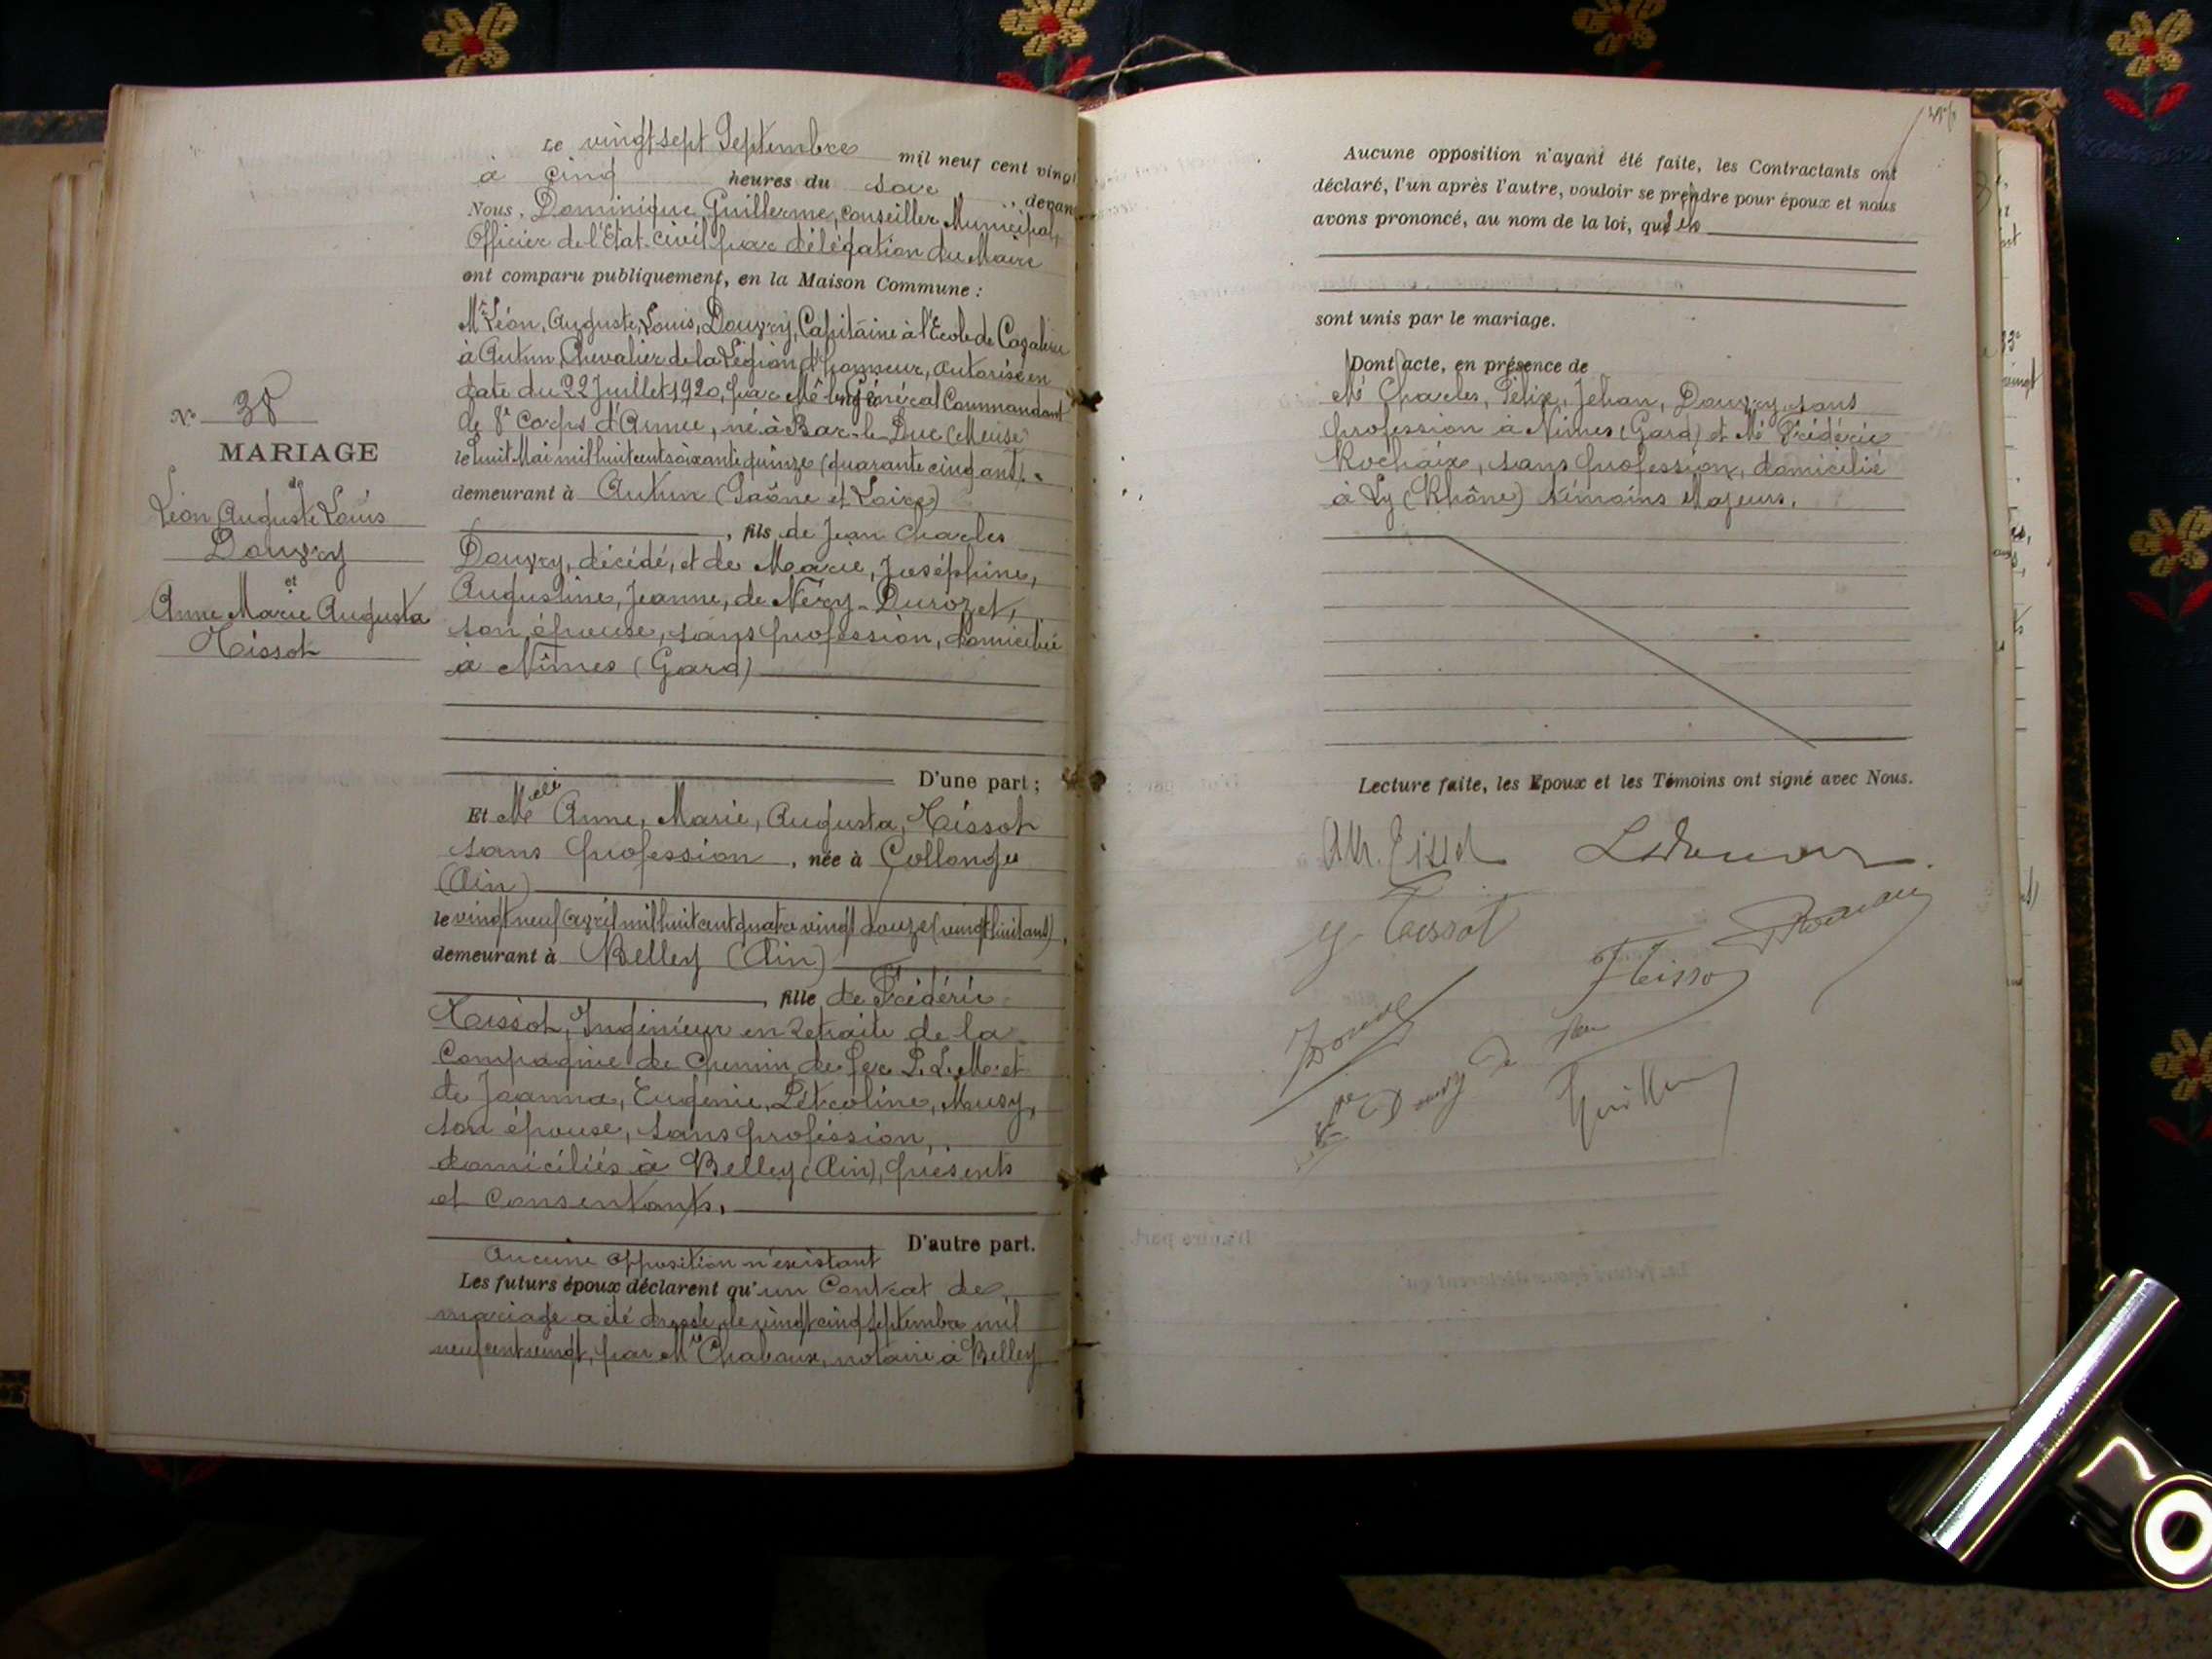 N° 38
MARIAGE
de
Léon Auguste Louis
Douvry
et
Anne Marie Augusta
Tissot
Le vingt sept Septembre mil neuf cent vingt
à cinq heures du soir, devant
Nous, Dominique Guillerme, Conseiller Municipal,
Officier de l'Etat-civil par délégation du Maire
ont comparu publiquement, en la Maison Commune :
Mr Léon, Auguste, Louis, Douvry, Capitaine à l'Ecole de Cavalerie
à Autun, Chevalier de la Légion d'honneur, autorisé en
date du 22 Juillet 1920, par Mr le Général Commandant
de 8e Corps d'Armée, né à Bar-le-Duc (Meuse)
le huit Mai mil huit cent soixante quinze (quarante cinq ans).
demeurant à Autun (Saône et Loire)
, fils de Jean Charles
Douvry, décédé, et de Marie, Joséphine,
Augustine, Jeanne, de Néry-Durozet,
son épouse, sans profession, domiciliée
à Nîmes (Gard)
D'une part ;
Et Melle Anne, Marie, Augusta, Tissot
sans profession, née à Collonges
(Ain)
le vingt neuf avril mil huit cent quatre vingt douze (vingt huit ans),
demeurant à Belley (Ain)
, fille de Frédéric
Tissot, Ingénieur en retraite de la
Compagnie de Chemin de fer P. L. M. et
de Joanna, Eugénie, Musy,
son épouse, sans profession,
domiciliés à Belley (Ain), présents
et Consentants.
D'autre part.
Aucune opposition n'existant
Les futurs époux déclarent qu'un Contrat de
mariage a été dressé le vingt cinq septembre mil
neuf cent vingt, par Me Chabaux, notaire à Belley
Aucune opposition n'ayant été faite, les Contractants ont
déclaré, l'un après l'autre, vouloir se prendre pour époux et nous
avons prononcé, au nom de la loi, qu'ils
sont unis par le mariage.
Dont acte, en présence de
Mr Charles, Félix, Jehan, Douvry, sans
profession à Nîmes (Gard) et Mr Frédéric
Rochaix, sans profession, domicilié
à Ly (Rhône) témoins Majeurs.
Lecture faite, les Epoux et les Témoins ont signé avec Nous.
Tissot
Tissot
Douvry de